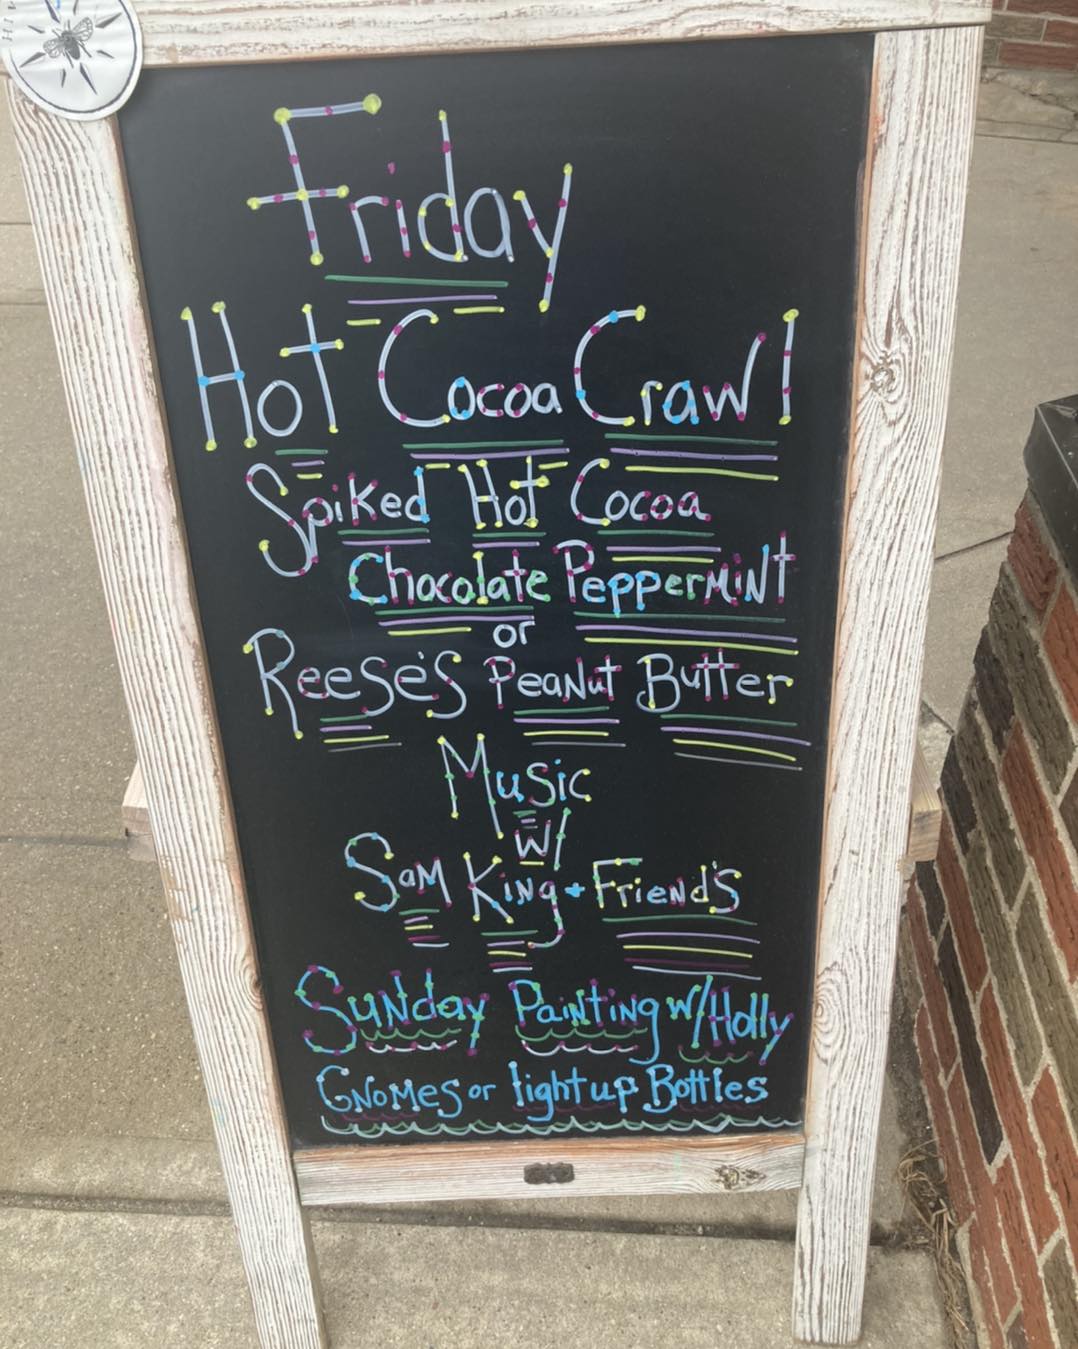 Friday
Hot Cocoa Crawl
Spiked Hot Cocoa
Chocolate Peppermint
or
Reese's Peanut Butter
Music
w/
Sam King + Friend's
Sunday Painting w/ Holly
Gnomes or light up Bottles